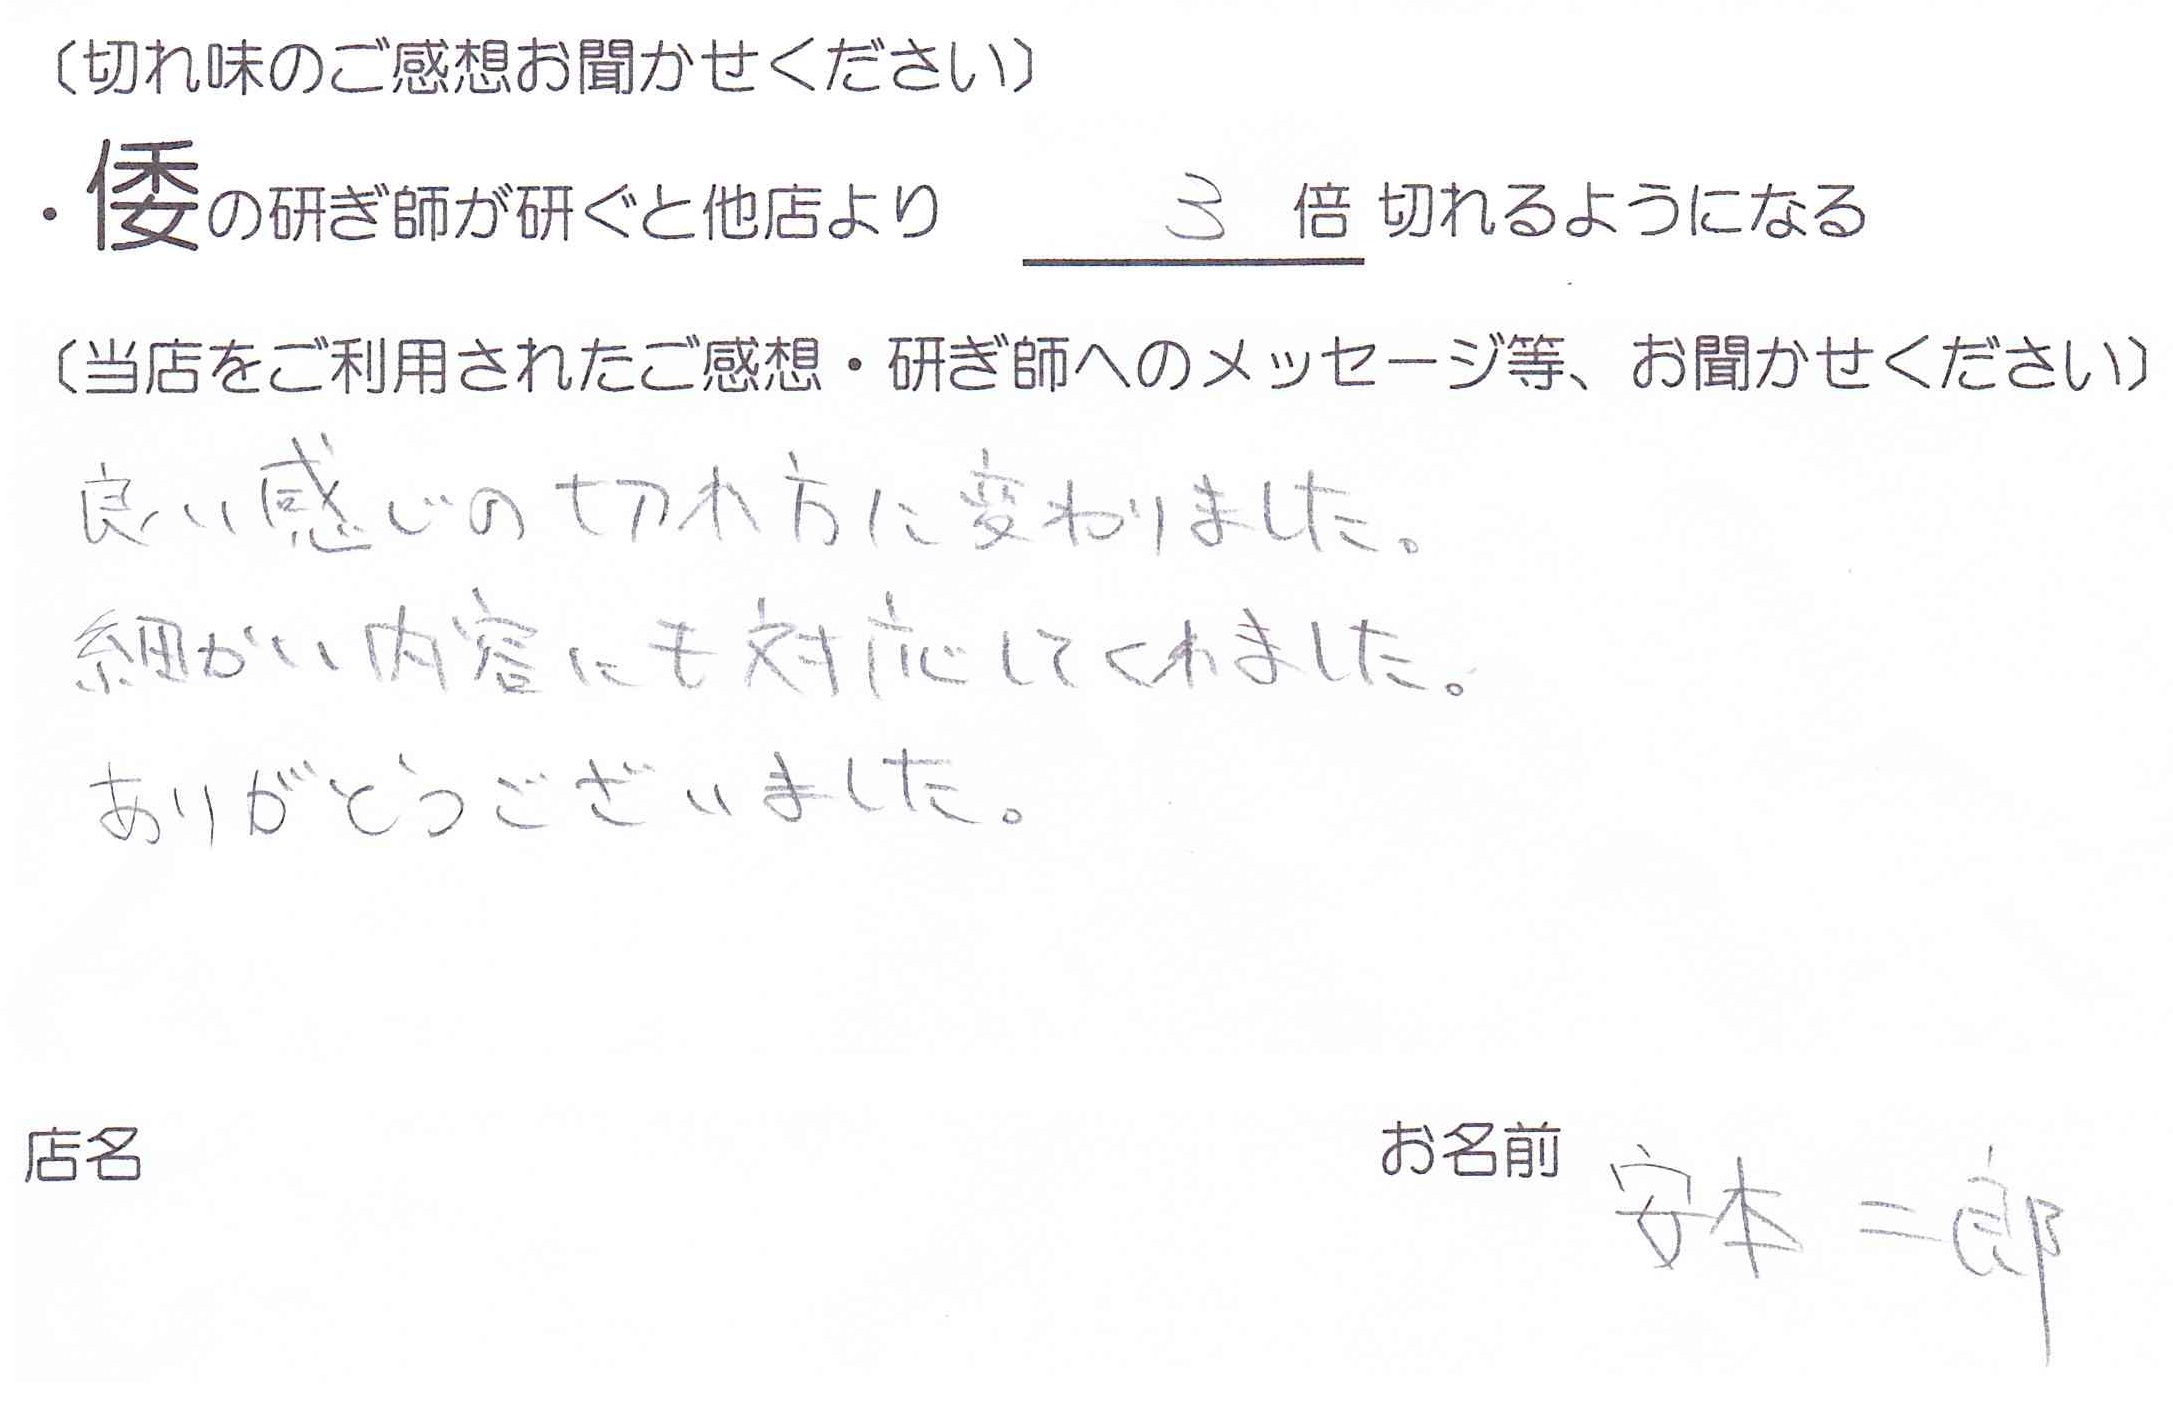 （切れ味のご感想お聞かせください）
・倭の研ぎ師が研ぐと他店より 3 倍 切れるようになる
（当店をご利用されたご感想・研ぎ師へのメッセージ等、お聞かせください）
良い感じの切れ方に変わりました。
細かい内容にも対応してくれました。
ありがとうございました。
店名 お名前 安本 二郎